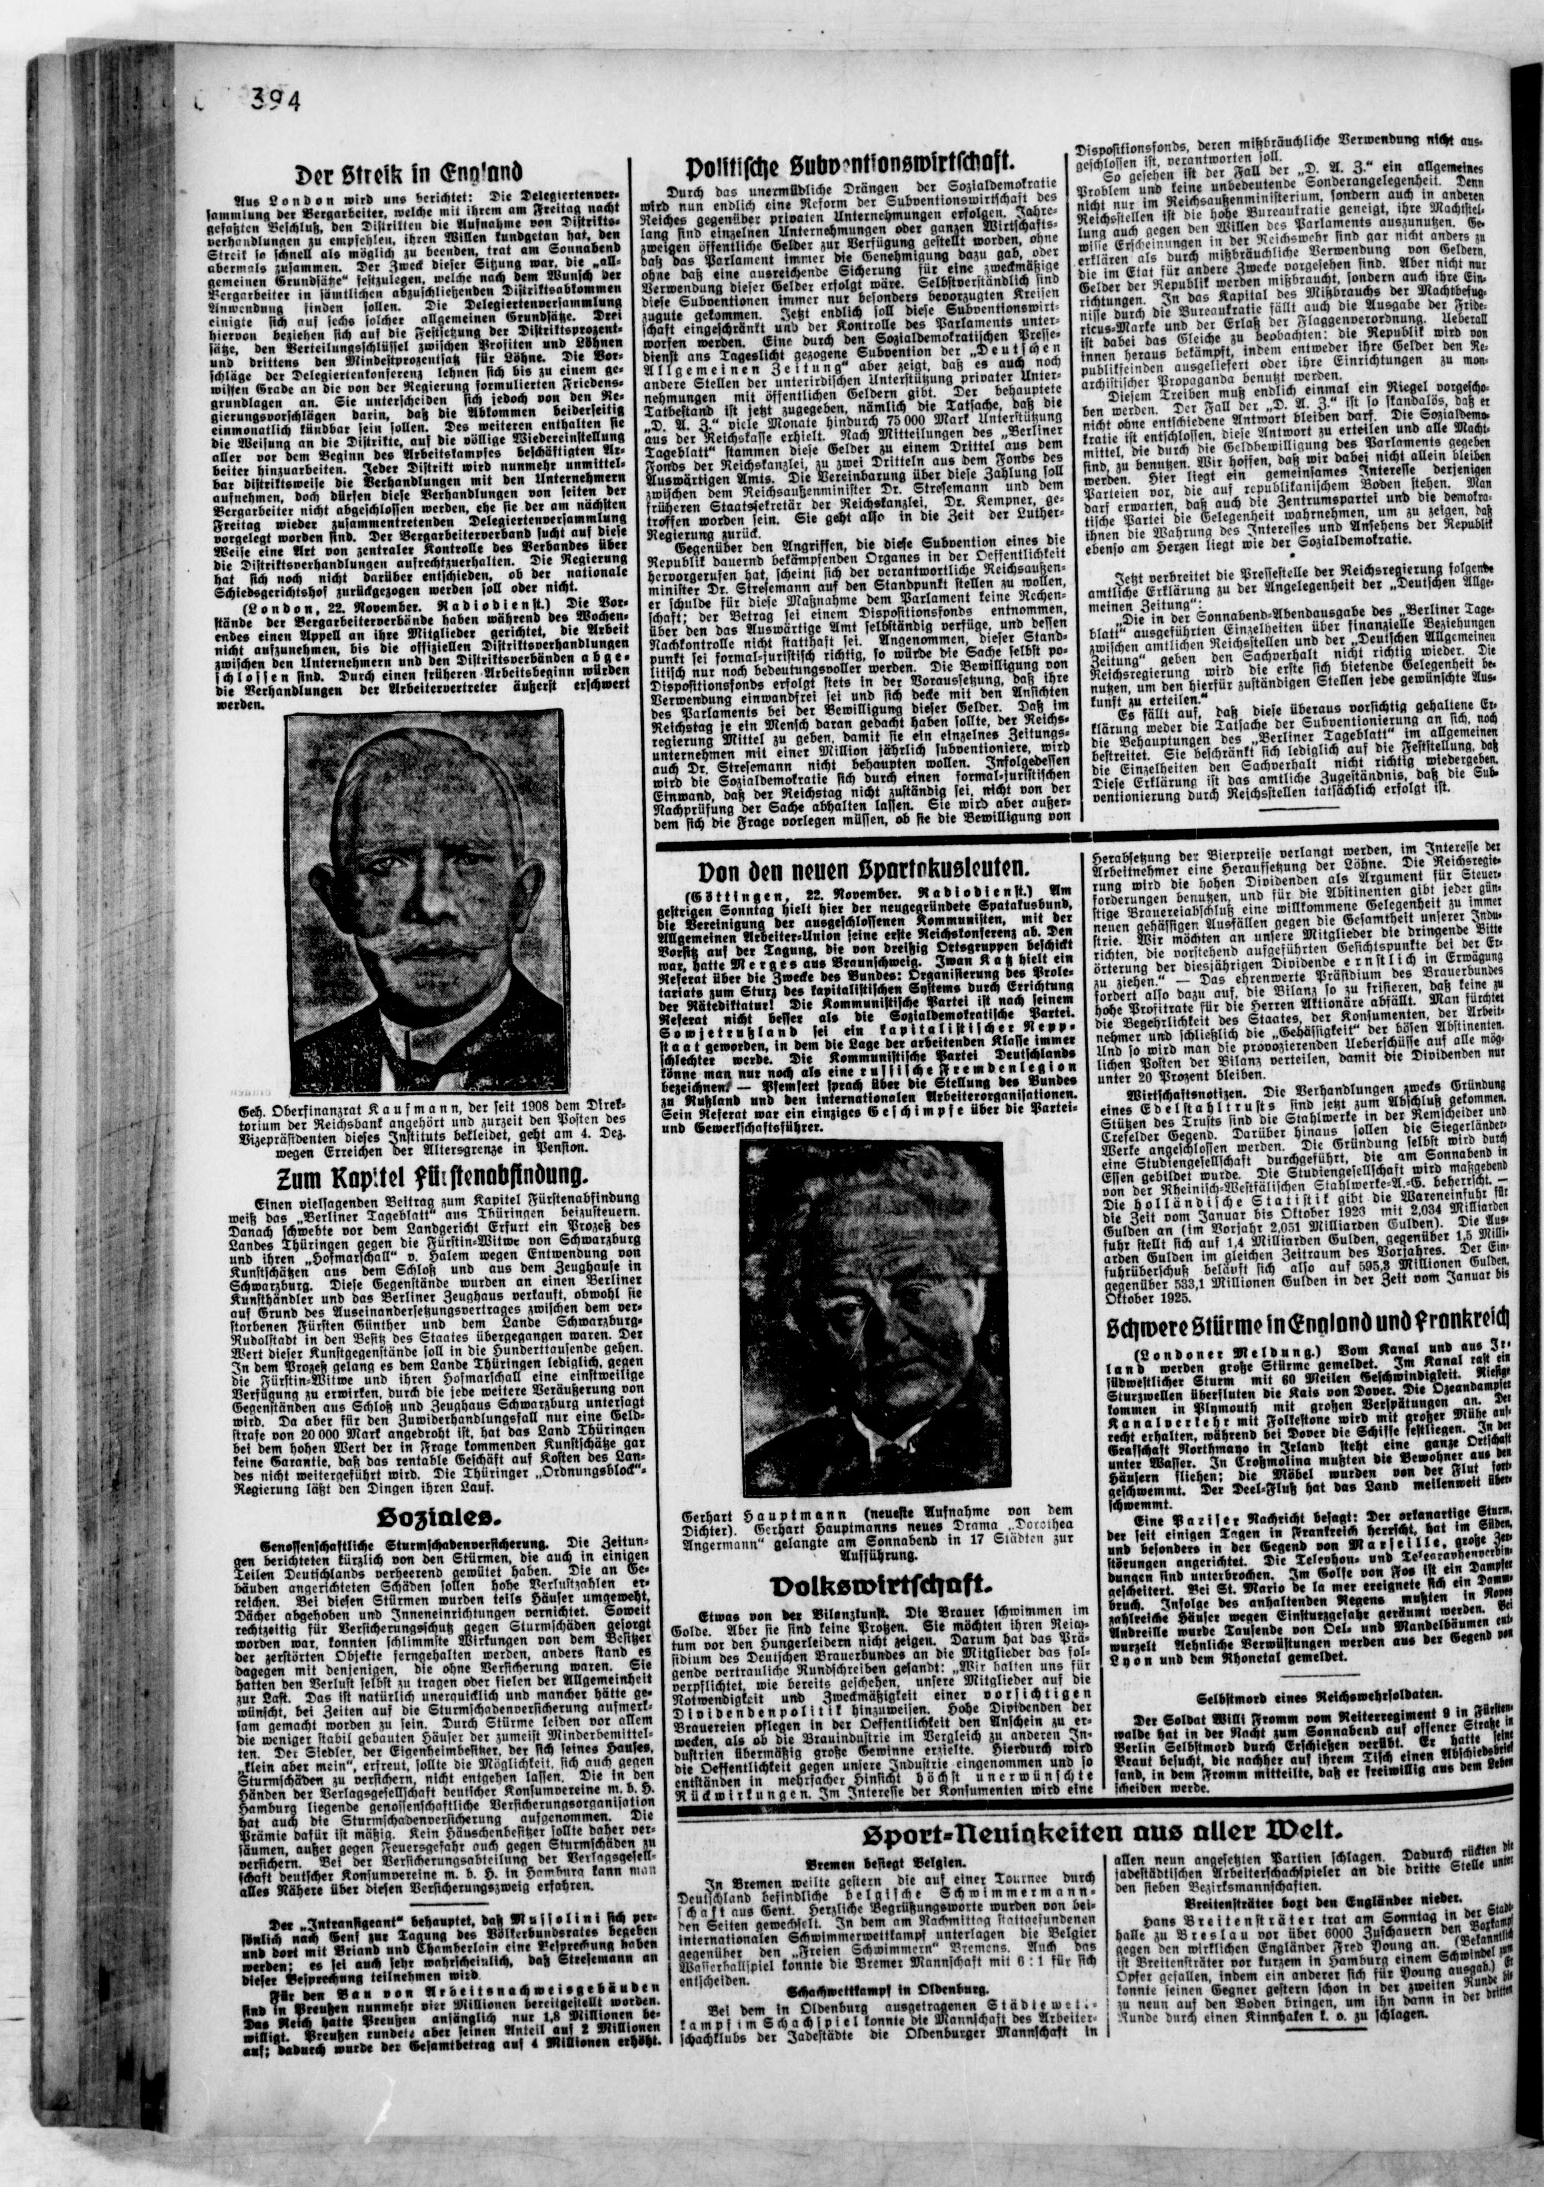 394
Der Streik in England
Aus London wird uns berichtet: Die Delegiertenver-
sammlung der Bergarbeiter, welche mit ihrem am Freitag nacht
gefaßten Beschluß, den Distrikten die Aufnahme von Distrikts-
verhandlungen zu empfehlen, ihren Willen kundgetan hat, den
Streik so schnell als möglich zu beenden, trat am Sonnabend
abermals zusammen. Der Zweck dieser Sitzung war, die „all-
gemeinen Grundsätze“ festzulegen, welche nach dem Wunsch der
Bergarbeiter in sämtlichen abzuschließenden Distriktsabkommen
Anwendung finden sollen. Die Delegiertenversammlung
einigte sich auf sechs solcher allgemeinen Grundsätze. Drei
hiervon beziehen sich auf die Festsetzung der Distriktsprozent-
sätze, den Verteilungsschlüssel zwischen Profiten und Löhnen
und drittens den Mindestprozentsatz für Löhne. Die Vor-
schläge der Delegiertenkonferenz lehnen sich bis zu einem ge-
wissen Grade an die von der Regierung formulierten Friedens-
grundlagen an. Sie unterscheiden sich jedoch von den Re-
gierungsvorschlägen darin, daß die Abkommen beiderseitig
einmonatlich kündbar sein sollen. Des weiteren enthalten sie
die Weisung an die Distrikte, auf die völlige Wiedereinstellung
aller vor dem Beginn des Arbeitskampfes beschäftigten Ar-
beiter hinzuarbeiten. Jeder Distrikt wird nunmehr unmittel-
bar distriktsweise die Verhandlungen mit den Unternehmern
aufnehmen, doch dürfen diese Verhandlungen von seiten der
Bergarbeiter nicht abgeschlossen werden, ehe sie der am nächsten
Freitag wieder zusammentretenden Delegiertenversammlung
vorgelegt worden sind. Der Bergarbeiterverband sucht auf diese
Weise eine Art von zentraler Kontrolle des Verbandes über
die Distriktsverhandlungen aufrechtzuerhalten. Die Regierung
hat sich noch nicht darüber entschieden, ob der nationale
Schiedsgerichtshof zurückgezogen werden soll oder nicht.
(London, 22. November. Radiodienst.) Die Vor-
stände der Bergarbeiterverbände haben während des Wochen-
endes einen Appell an ihre Mitglieder gerichtet, die Arbeit
nicht aufzunehmen, bis die offiziellen Distriktsverhandlungen
zwischen den Unternehmern und den Distriktsverbänden abge-
schlossen sind. Durch einen früheren Arbeitsbeginn würden
die Verhandlungen der Arbeitervertreter äußerst erschwert
werden.
Geh. Oberfinanzrat Kaufmann, der seit 1908 dem Direk-
torium der Reichsbank angehört und zurzeit den Posten des
Vizepräsidenten dieses Instituts bekleidet, geht am 4. Dez.
wegen Erreichen der Altersgrenze in Pension.
Zum Kapitel Fürstenabfindung.
Einen vielsagenden Beitrag zum Kapitel Fürstenabfindung
weiß das „Berliner Tageblatt“ aus Thüringen beizusteuern.
Danach schwebte vor dem Landgericht Erfurt ein Prozeß des
Landes Thüringen gegen die Fürstin-Witwe von Schwarzburg
und ihren „Hofmarschall“ v. Halem wegen Entwendung von
Kunstschätzen aus dem Schloß und aus dem Zeughause in
Schwarzburg. Diese Gegenstände wurden an einen Berliner
Kunsthändler und das Berliner Zeughaus verkauft, obwohl sie
auf Grund des Auseinandersetzungsvertrages zwischen dem ver-
storbenen Fürsten Günther und dem Lande Schwarzburg-
Rudolstadt in den Besitz des Staates übergegangen waren. Der
Wert dieser Kunstgegenstände soll in die Hunderttausende gehen.
In dem Prozeß gelang es dem Lande Thüringen lediglich, gegen
die Fürstin-Witwe und ihren Hofmarschall eine einstweilige
Verfügung zu erwirken, durch die jede weitere Veräußerung von
Gegenständen aus Schloß und Zeughaus Schwarzburg untersagt
wird. Da aber für den Zuwiderhandlungsfall nur eine Geld-
strafe von 20 000 Mark angedroht ist, hat das Land Thüringen
bei dem hohen Wert der in Frage kommenden Kunstschätze gar
keine Garantie, daß das rentable Geschäft auf Kosten des Lan-
des nicht weitergeführt wird. Die Thüringer „Ordnungsblock“-
Regierung läßt den Dingen ihren Lauf.
Soziales.
Genossenschaftliche Sturmschadenversicherung. Die Zeitun-
gen berichteten kürzlich von den Stürmen, die auch in einigen
Teilen Deutschlands verheerend gewütet haben. Die an Ge-
bäuden angerichteten Schäden sollen hohe Verlustzahlen er-
reichen. Bei diesen Stürmen wurden teils Häuser umgeweht,
Dächer abgehoben und Inneneinrichtungen vernichtet. Soweit
rechtzeitig für Versicherungsschutz gegen Sturmschäden gesorgt
worden war, konnten schlimmste Wirkungen von dem Besitzer
der zerstörten Objekte ferngehalten werden, anders stand es
dagegen mit denjenigen, die ohne Versicherung waren. Sie
hatten den Verlust selbst zu tragen oder fielen der Allgemeinheit
zur Last. Das ist natürlich unerquicklich und mancher hätte ge-
wünscht, bei Zeiten auf die Sturmschadenversicherung aufmerk-
sam gemacht worden zu sein. Durch Stürme leiden vor allem
die weniger stabil gebauten Häuser der zumeist Minderbemittel-
ten. Der Siedler, der Eigenheimbesitzer, der sich seines Hauses,
„klein aber mein“, erfreut, sollte die Möglichkeit, sich auch gegen
Sturmschäden zu versichern, nicht entgehen lassen. Die in den
Händen der Verlagsgesellschaft deutscher Konsumvereine m. b. H.
Hamburg liegende genossenschaftliche Versicherungsorganisation
hat auch die Sturmschadenversicherung aufgenommen. Die
Prämie dafür ist mäßig. Kein Häuschenbesitzer sollte daher ver-
säumen, außer gegen Feuersgefahr auch gegen Sturmschäden zu
versichern. Bei der Versicherungsabteilung der Verlagsgesell-
schaft deutscher Konsumvereine m. b. H. in Hamburg kann man
alles Nähere über diesen Versicherungszweig erfahren.
Der „Intransigeant“ behauptet, daß Mussolini sich per-
sönlich nach Genf zur Tagung des Völkerbundsrates begeben
und dort mit Briand und Chamberlain eine Besprechung haben
werden; es sei auch sehr wahrscheinlich, daß Stresemann an
dieser Besprechung teilnehmen wird.
Für den Bau von Arbeitsnachweisgebäuden
sind in Preußen nunmehr vier Millionen bereitgestellt worden.
Das Reich hatte Preußen anfänglich nur 1,8 Millionen be-
willigt. Preußen rundete aber seinen Anteil auf 2 Millionen
auf; dadurch wurde der Gesamtbetrag auf 4 Millionen erhöht.
Politische Subventionswirtschaft.
Durch das unermüdliche Drängen der Sozialdemokratie
wird nun endlich eine Reform der Subventionswirtschaft des
Reiches gegenüber privaten Unternehmungen erfolgen. Jahre-
lang sind einzelnen Unternehmungen oder ganzen Wirtschafts-
zweigen öffentliche Gelder zur Verfügung gestellt worden, ohne
daß das Parlament immer die Genehmigung dazu gab, oder
ohne daß eine ausreichende Sicherung für eine zweckmäßige
Verwendung dieser Gelder erfolgt wäre. Selbstverständlich sind
diese Subventionen immer nur besonders bevorzugten Kreisen
zugute gekommen. Jetzt endlich soll diese Subventionswirt-
schaft eingeschränkt und der Kontrolle des Parlaments unter-
worfen werden. Eine durch den Sozialdemokratischen Presse-
dienst ans Tageslicht gezogene Subvention der „Deutschen
Allgemeinen Zeitung“ aber zeigt, daß es auch noch
andere Stellen der unterirdischen Unterstützung privater Unter-
nehmungen mit öffentlichen Geldern gibt. Der behauptete
Tatbestand ist jetzt zugegeben, nämlich die Tatsache, daß die
„D. A. Z.“ viele Monate hindurch 75 000 Mark Unterstützung
aus der Reichskasse erhielt. Nach Mitteilungen des „Berliner
Tageblatt“ stammen diese Gelder zu einem Drittel aus dem
Fonds der Reichskanzlei, zu zwei Dritteln aus dem Fonds des
Auswärtigen Amts. Die Vereinbarung über diese Zahlung soll
zwischen dem Reichsaußenminister Dr. Stresemann und dem
früheren Staatssekretär der Reichskanzlei, Dr. Kempner, ge-
troffen worden sein. Sie geht also in die Zeit der Luther-
Regierung zurück.
Gegenüber den Angriffen, die diese Subvention eines die
Republik dauernd bekämpfenden Organes in der Oeffentlichkeit
hervorgerufen hat, scheint sich der verantwortliche Reichsaußen-
minister Dr. Stresemann auf den Standpunkt stellen zu wollen,
er schulde für diese Maßnahme dem Parlament keine Rechen-
schaft; der Betrag sei einem Dispositionsfonds entnommen,
über den das Auswärtige Amt selbständig verfüge, und dessen
Nachkontrolle nicht statthaft sei. Angenommen, dieser Stand-
punkt sei formal-juristisch richtig, so würde die Sache selbst po-
litisch nur noch bedeutungsvoller werden. Die Bewilligung von
Dispositionsfonds erfolgt stets in der Voraussetzung, daß ihre
Verwendung einwandfrei sei und sich decke mit den Ansichten
des Parlaments bei der Bewilligung dieser Gelder. Daß im
Reichstag je ein Mensch daran gedacht haben sollte, der Reichs-
regierung Mittel zu geben, damit sie ein einzelnes Zeitungs-
unternehmen mit einer Million jährlich subventioniere, wird
auch Dr. Stresemann nicht behaupten wollen. Infolgedessen
wird die Sozialdemokratie sich durch einen formal-juristischen
Einwand, daß der Reichstag nicht zuständig sei, nicht von der
Nachprüfung der Sache abhalten lassen. Sie wird aber außer-
dem sich die Frage vorlegen müssen, ob sie die Bewilligung von
Dispositionsfonds, deren mißbräuchliche Verwendung nicht aus-
geschlossen ist, verantworten soll.
So gesehen ist der Fall der „D. A. Z.“ ein allgemeines
Problem und keine unbedeutende Sonderangelegenheit. Denn
nicht nur im Reichsaußenministerium, sondern auch in anderen
Reichsstellen ist die hohe Bureaukratie geneigt, ihre Machtstel-
lung auch gegen den Willen des Parlaments auszunutzen. Ge-
wisse Erscheinungen in der Reichswehr sind gar nicht anders zu
erklären als durch mißbräuchliche Verwendung von Geldern,
die im Etat für andere Zwecke vorgesehen sind. Aber nicht nur
Gelder der Republik werden mißbraucht, sondern auch ihre Ein-
richtungen. In das Kapital des Mißbrauchs der Machtbefug-
nisse durch die Bureaukratie fällt auch die Ausgabe der Fride-
ricus-Marke und der Erlaß der Flaggenverordnung. Ueberall
ist dabei das Gleiche zu beobachten: die Republik wird von
innen heraus bekämpft, indem entweder ihre Gelder den Re-
publikfeinden ausgeliefert oder ihre Einrichtungen zu mon-
archistischer Propaganda benutzt werden.
Diesem Treiben muß endlich einmal ein Riegel vorgescho-
ben werden. Der Fall der „D. A. Z.“ ist so skandalös, daß er
nicht ohne entschiedene Antwort bleiben darf. Die Sozialdemo-
kratie ist entschlossen, diese Antwort zu erteilen und alle Macht-
mittel, die durch die Geldbewilligung des Parlaments gegeben
sind, zu benutzen. Wir hoffen, daß wir dabei nicht allein bleiben
werden. Hier liegt ein gemeinsames Interesse derjenigen
Parteien vor, die auf republikanischem Boden stehen. Man
darf erwarten, daß auch die Zentrumspartei und die demokra-
tische Partei die Gelegenheit wahrnehmen, um zu zeigen, daß
ihnen die Wahrung des Interesses und Ansehens der Republik
ebenso am Herzen liegt wie der Sozialdemokratie.
Jetzt verbreitet die Pressestelle der Reichsregierung folgende
amtliche Erklärung zu der Angelegenheit der „Deutschen Allge-
meinen Zeitung“:
„Die in der Sonnabend-Abendausgabe des „Berliner Tage-
blatt“ ausgeführten Einzelheiten über finanzielle Beziehungen
zwischen amtlichen Reichsstellen und der „Deutschen Allgemeinen
Zeitung“ geben den Sachverhalt nicht richtig wieder. Die
Reichsregierung wird die erste sich bietende Gelegenheit be-
nutzen, um den hierfür zuständigen Stellen jede gewünschte Aus-
kunft zu erteilen.“
Es fällt auf, daß diese überaus vorsichtig gehaltene Er-
klärung weder die Tatsache der Subventionierung an sich, noch
die Behauptungen des „Berliner Tageblatt“ im allgemeinen
bestreitet. Sie beschränkt sich lediglich auf die Feststellung, daß
die Einzelheiten den Sachverhalt nicht richtig wiedergeben.
Diese Erklärung ist das amtliche Zugeständnis, daß die Sub-
ventionierung durch Reichsstellen tatsächlich erfolgt ist.
Von den neuen Spartakusleuten.
(Göttingen, 22. November. Radiodienst.) Am
gestrigen Sonntag hielt hier der neugegründete Spatakusbund,
die Vereinigung der ausgeschlossenen Kommunisten, mit der
Allgemeinen Arbeiter-Union seine erste Reichskonferenz ab. Den
Vorsitz auf der Tagung, die von dreißig Ortsgruppen beschickt
war, hatte Merges aus Braunschweig. Iwan Katz hielt ein
Referat über die Zwecke des Bundes: Organisierung des Prole-
tariats zum Sturz des kapitalistischen Systems durch Errichtung
der Rätediktatur! Die Kommunistische Partei ist nach seinem
Referat nicht besser als die Sozialdemokratische Partei.
Sowjetrußland sei ein kapitalistischer Nepp-
staat geworden, in dem die Lage der arbeitenden Klasse immer
schlechter werde. Die Kommunistische Partei Deutschlands
könne man nur noch als eine russische Fremdenlegion
bezeichnen. — Pfemfert sprach über die Stellung des Bundes
zu Rußland und den internationalen Arbeiterorganisationen.
Sein Referat war ein einziges Geschimpfe über die Partei-
und Gewerkschaftsführer.
Gerhart Hauptmann (neueste Aufnahme von dem
Dichter). Gerhart Hauptmanns neues Drama „Dorothea
Angermann“ gelangte am Sonnabend in 17 Städten zur
Aufführung.
Volkswirtschaft.
Etwas von der Bilanzkunst. Die Brauer schwimmen im
Golde. Aber sie sind keine Protzen. Sie möchten ihren Reich-
tum vor den Hungerleidern nicht zeigen. Darum hat das Prä-
sidium des Deutschen Brauerbundes an die Mitglieder das fol-
gende vertrauliche Rundschreiben gesandt: „Wir halten uns für
verpflichtet, wie bereits geschehen, unsere Mitglieder auf die
Notwendigkeit und Zweckmäßigkeit einer vorsichtigen
Dividendenpolitik hinzuweisen. Hohe Dividenden der
Brauereien pflegen in der Oeffentlichkeit den Anschein zu er-
wecken, als ob die Brauindustrie im Vergleich zu anderen In-
dustrien übermäßig große Gewinne erzielte. Hierdurch wird
die Oeffentlichkeit gegen unsere Industrie eingenommen und so
entständen in mehrfacher Hinsicht höchst unerwünschte
Rückwirkungen. Im Interesse der Konsumenten wird eine
Herabsetzung der Bierpreise verlangt werden, im Interesse der
Arbeitnehmer eine Heraufsetzung der Löhne. Die Reichsregie-
rung wird die hohen Dividenden als Argument für Steuer-
forderungen benutzen, und für die Abstinenten gibt jeder gün-
stige Brauereiabschluß eine willkommene Gelegenheit zu immer
neuen gehässigen Ausfällen gegen die Gesamtheit unserer Indu-
strie. Wir möchten an unsere Mitglieder die dringende Bitte
richten, die vorstehend aufgeführten Gesichtspunkte bei der Er-
örterung der diesjährigen Dividende ernstlich in Erwägung
zu ziehen.“ — Das ehrenwerte Präsidium des Brauerbundes
fordert also dazu auf, die Bilanz so zu frisieren, daß keine zu
hohe Profitrate für die Herren Aktionäre abfällt. Man fürchtet
die Begehrlichkeit des Staates, der Konsumenten, der Arbeit-
nehmer und schließlich die „Gehässigkeit“ der bösen Abstinenten.
Und so wird man die provozierenden Ueberschüsse auf alle mög-
lichen Posten der Bilanz verteilen, damit die Dividenden nur
unter 20 Prozent bleiben.
Wirtschaftsnotizen. Die Verhandlungen zwecks Gründung
eines Edelstahltrusts sind jetzt zum Abschluß gekommen.
Stützen des Trusts sind die Stahlwerke in der Remscheider und
Crefelder Gegend. Darüber hinaus sollen die Siegerländer-
Werke angeschlossen werden. Die Gründung selbst wird durch
eine Studiengesellschaft durchgeführt, die am Sonnabend in
Essen gebildet wurde. Die Studiengesellschaft wird maßgebend
von der Rheinisch-Westfälischen Stahlwerke-A.-G. beherrscht. —
Die holländische Statistik gibt die Wareneinfuhr für
die Zeit vom Januar bis Oktober 1926 mit 2,034 Milliarden
Gulden an (im Vorjahr 2,051 Milliarden Gulden). Die Aus-
fuhr stellt sich auf 1,4 Milliarden Gulden, gegenüber 1,5 Milli-
arden Gulden im gleichen Zeitraum des Vorjahres. Der Ein-
fuhrüberschuß beläuft sich also auf 595,3 Millionen Gulden,
gegenüber 533,1 Millionen Gulden in der Zeit vom Januar bis
Oktober 1925.
Schwere Stürme in England und Frankreich
(Londoner Meldung.) Vom Kanal und aus Ir-
land werden große Stürme gemeldet. Im Kanal rast ein
südwestlicher Sturm mit 60 Meilen Geschwindigkeit. Riesige
Sturzwellen überfluten die Kais von Dover. Die Ozeandampfer
kommen in Plymouth mit großen Verspätungen an. Der
Kanalverkehr mit Folkestone wird mit großer Mühe auf-
recht erhalten, während bei Dover die Schiffe festliegen. In der
Grafschaft Northmayo in Irland steht eine ganze Ortschaft
unter Wasser. In Croßmolina mußten die Bewohner aus den
Häusern fliehen; die Möbel wurden von der Flut fort-
geschwemmt. Der Deel-Fluß hat das Land meilenweit über-
schwemmt.
Eine Pariser Nachricht besagt: Der orkanartige Sturm,
der seit einigen Tagen in Frankreich herrscht, hat im Süden,
und besonders in der Gegend von Marseille, große Zer-
störungen angerichtet. Die Telephon- und Telegraphenverbin-
dungen sind unterbrochen. Im Golfe von Fos ist ein Dampfer
gescheitert. Bei St. Mario de la mer ereignete sich ein Damm-
bruch. Infolge des anhaltenden Regens mußten in
zahlreiche Häuser wegen Einsturzgefahr geräumt werden. Bei
Andreille wurde Tausende von Oel- und Mandelbäumen ent-
wurzelt Aehnliche Verwüstungen werden aus der Gegend von
Lyon und dem Rhonetal gemeldet.
Selbstmord eines Reichswehrsoldaten.
Der Soldat Willi Fromm vom Reiterregiment 9 in Fürsten-
walde hat in der Nacht zum Sonnabend auf offener Straße in
Berlin Selbstmord durch Erschießen verübt. Er hatte seine
Braut besucht, die nachher auf ihrem Tisch einen Abschiedsbrief
fand, in dem Fromm mitteilte, daß er freiwillig aus dem Leben
scheiden werde.
Sport-Neuigkeiten aus aller Welt.
Bremen besiegt Belgien.
In Bremen weilte gestern die auf einer Tournee durch
Deutschland befindliche belgische Schwimmermann-
schaft aus Gent. Herzliche Begrüßungsworte wurden von bei-
den Seiten gewechselt. In dem am Nachmittag stattgefundenen
internationalen Schwimmerwettkampf unterlagen die Belgier
gegenüber den „Freien Schwimmern“ Bremens. Auch das
Wasserballspiel konnte die Bremer Mannschaft mit 6 : 1 für sich
entscheiden.
Schachwettkampf in Oldenburg.
Bei dem in Oldenburg ausgetragenen Städtewett-
kampf im Schachspiel konnte die Mannschaft des Arbeiter-
schachklubs der Jadestädte die Oldenburger Mannschaft in
allen neun angesetzten Partien schlagen. Dadurch rückten die
jadestädtischen Arbeiterschachspieler an die dritte Stelle unter
den sieben Bezirksmannschaften.
Breitensträter boxt den Engländer nieder.
Hans Breitensträter trat am Sonntag in der Stadt-
halle zu Breslau vor über 6000 Zuschauern den Boxkampf
gegen den wirklichen Engländer Fred Young an. (Bekanntlich
ist Breitensträter vor kurzem in Hamburg einem Schwindel zum
Opfer gefallen, indem ein anderer sich für Young ausgab.) Er
konnte seinen Gegner gestern schon in der zweiten Runde bis
zu neun auf den Boden bringen, um ihn dann in der dritten
Runde durch einen Kinnhaken k. o. zu schlagen.